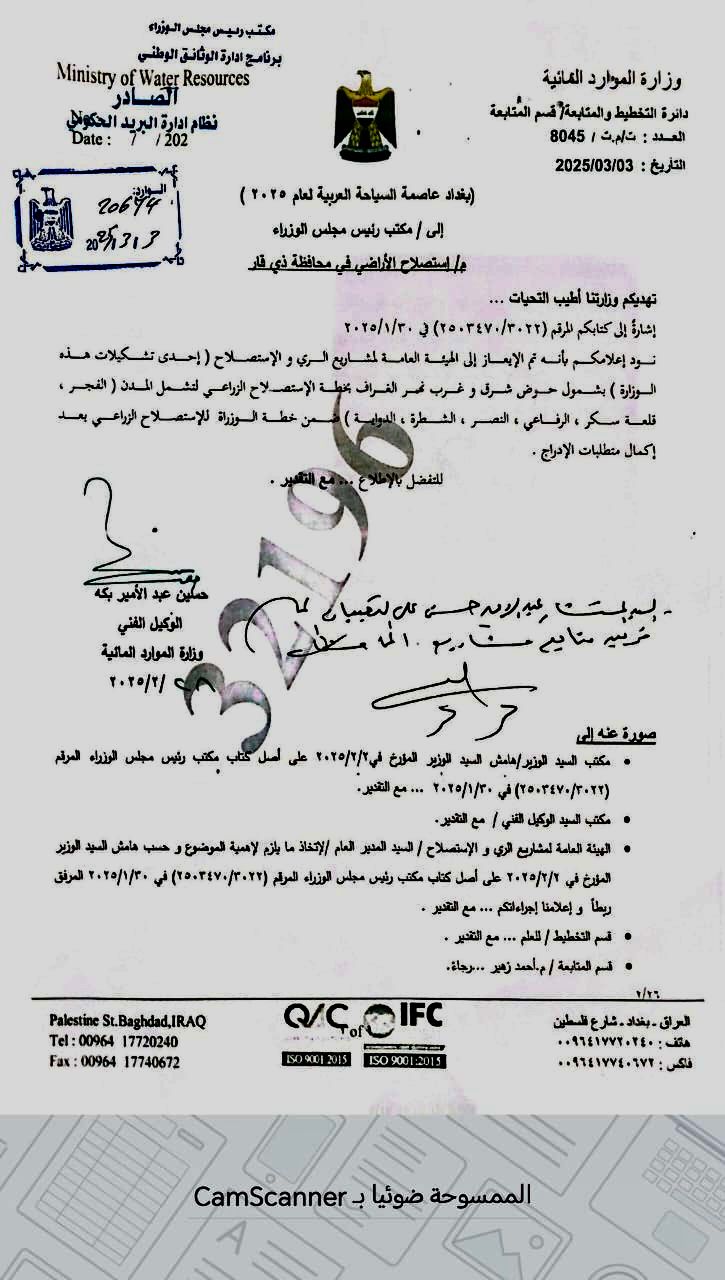 مكتب رئيس مجلس الوزراء
برنامج ادارة الوثائق الوطني
Ministry of Water Resources
الصادر
نظام ادارة البريد الحكومي
No
Date : / / 202
وزارة الموارد المائية
دائرة التخطيط والمتابعة/ قسم المتابعة
العدد : ت/م.ت / 8045
التاريخ : 2025/03/03
الوارد:
20674
2025/3/3
(بغداد عاصمة السياحة العربية لعام ٢٠٢٥ )
إلى / مكتب رئيس مجلس الوزراء
م/ إستصلاح الأراضي في محافظة ذي قار
تهديكم وزارتنا أطيب التحيات ...
إشارةً إلى كتابكم المرقم (٢٥٠٣٤٧٠/٣٠٢٢) في ٢٠٢٥/١/٣٠
نـود إعلامكـم بأنـه تم الإيعـاز إلى الهيئـة العامـة لمشـاريع الـري و الإستصـلاح ( إحـدى تشـكيلات هـذه
الوزارة ) بشمول حوض شرق و غرب نهر الغراف بخطة الإستصلاح الزراعي لتشمل المدن ( الفجر ،
قلعة سكر ، الرفاعي ، النصر ، الشطرة ، الدواية ) ضمن خطة الوزراة للإستصلاح الزراعي بعد
إكمال متطلبات الإدراج .
للتفضل بالإطلاع ... مع التقدير .
32196
حسين عبد الأمير بكه
الوكيل الفني
وزارة الموارد المائية
٢٠٢٥/٢/
صورة عنه إلى
• مكتب السيد الوزير/هامش السيد الوزير المؤرخ في٢٠٢٥/٢/٢ على أصل كتاب مكتب رئيس مجلس الوزراء المرقم
(٢٥٠٣٤٧٠/٣٠٢٢) في ٢٠٢٥/١/٣٠ ... مع التقدير.
• مكتب السيد الوكيل الفني / مع التقدير.
• الهيئة العامة لمشاريع الري و الإستصلاح / السيد المدير العام /لإتخاذ ما يلزم لإهمية الموضوع و حسب هامش السيد الوزير
المؤرخ في ٢٠٢٥/٢/٢ على أصل كتاب مكتب رئيس مجلس الوزراء المرقم (٢٥٠٣٤٧٠/٣٠٢٢) في ٢٠٢٥/١/٣٠ المرفق
ربطاً و إعلامنا إجراءاتكم ... مع التقدير .
• قسم التخطيط / للعلم ... مع التقدير .
• قسم المتابعة / م.أحمد زهير ...رجاءً.
٢/٢٦
Palestine St.Baghdad,IRAQ
Tel : 00964 17720240
Fax : 00964 17740672
QAC of IFC
ISO 9001 2015
ISO 9001:2015
العراق - بغداد - شارع فلسطين
هاتف : ٠٠٩٦٤١٧٧٢٠٢٤٠
فاكس : ٠٠٩٦٤١٧٧٤٠٦٧٢
الممسوحة ضوئيا بـ CamScanner